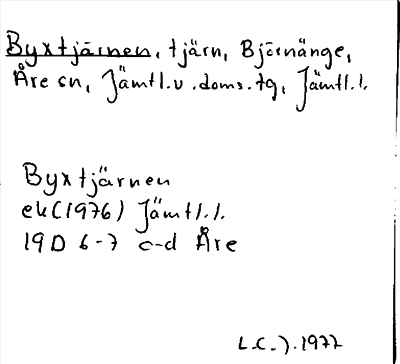 Byxtjärnen, tjärn, Björnänge,
Åre sn, Jämtl.v.doms.tg, Jämtl.l.
Byxtjärnen
ek(1976) Jämtl.l.
19D 6-7 c-d Åre
L.C.J.1977